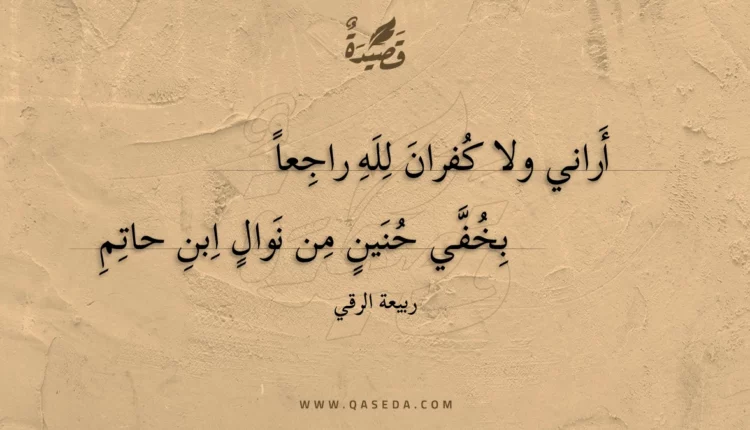 قَصِيْدَةٌ
أَراني ولا كُفرانَ لِلَهِ راجِعاً
بِخُفَّي حُنَينٍ مِن نَوالٍ اِبنِ حاتِمِ
ربيعة الرقي
WWW.QASEDA.COM